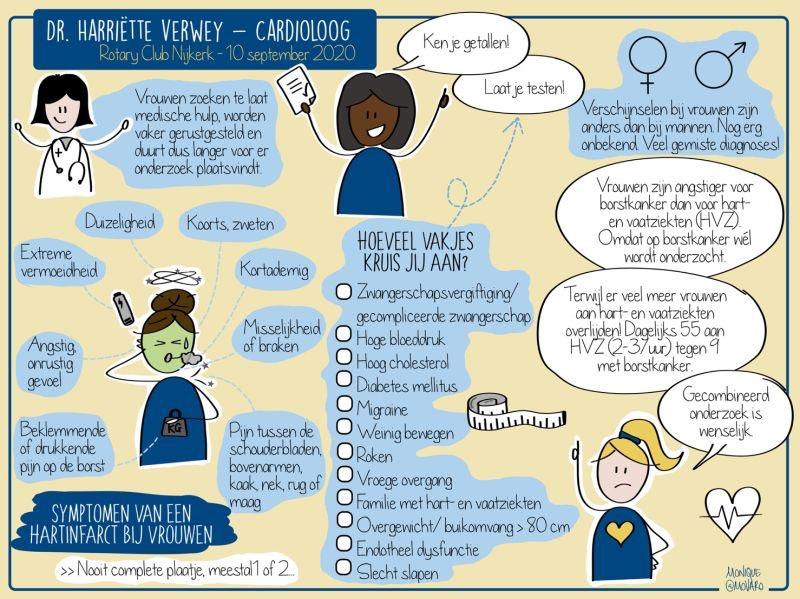 DR. HARRIËTTE VERWEY – CARDIOLOOG
Rotary Club Nijkerk - 10 september 2020
Vrouwen zoeken te laat
medische hulp, worden
vaker gerustgesteld en
duurt dus langer voor er
onderzoek plaatsvindt.
Ken je getallen!
Laat je testen!
Verschijnselen bij vrouwen zijn
anders dan bij mannen. Nog erg
onbekend. Veel gemiste diagnoses!
Vrouwen zijn angstiger voor
borstkanker dan voor hart-
en vaatziekten (HVZ).
Omdat op borstkanker wél
wordt onderzocht.
Terwijl er veel meer vrouwen
aan hart- en vaatziekten
overlijden! Dagelijks 55 aan
HVZ (2-3/uur) tegen 9
met borstkanker.
Gecombineerd
onderzoek is
wenselijk.
Duizeligheid
Koorts, zweten
Extreme
vermoeidheid
Kortademig
Angstig,
onrustig
gevoel
Misselijkheid
of braken
Beklemmende
of drukkende
pijn op de borst
KG
Pijn tussen de
schouderbladen,
bovenarmen,
kaak, nek, rug of
maag
SYMPTOMEN VAN EEN
HARTINFARCT BIJ VROUWEN
>> Nooit complete plaatje, meestal 1 of 2...
HOEVEEL VAKJES
KRUIS JIJ AAN?
Zwangerschapsvergiftiging/
gecompliceerde zwangerschap
Hoge bloeddruk
Hoog cholesterol
Diabetes mellitus
Migraine
Weinig bewegen
Roken
Vroege overgang
Familie met hart- en vaatziekten
Overgewicht/ buikomvang > 80 cm
Endotheel dysfunctie
Slecht slapen
MONIQUE
@MOVARO